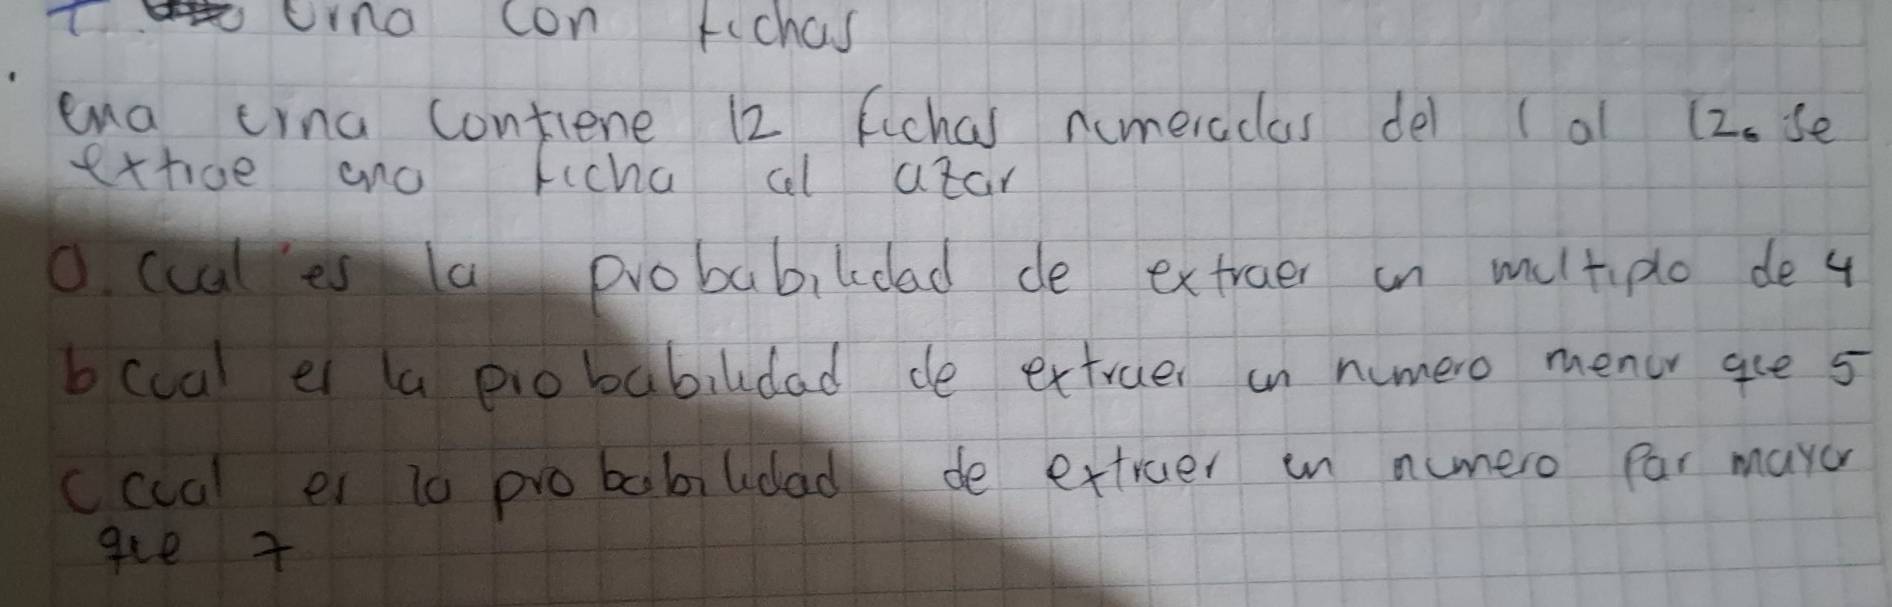 urna con fichas
una urna contiene 12 fichas numeradas del 1 al 12. se
extrae una ficha al azar
a. cual es la probabilidad de extraer un multiplo de 4
b cual es la probabilidad de extraer un numero menor que 5
c cual es la probabilidad de extraer un numero par mayor
que 7